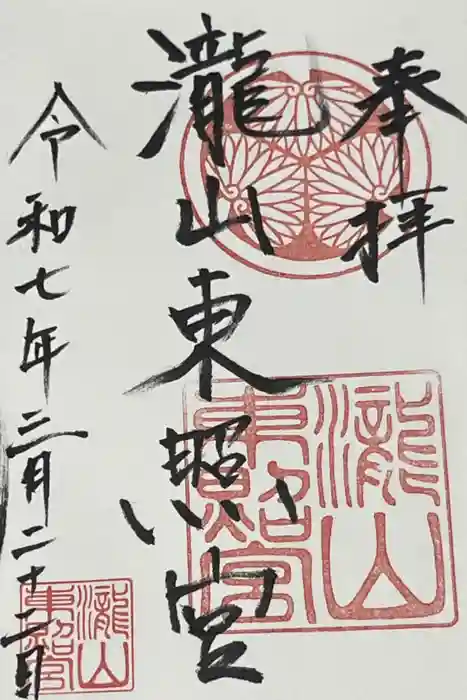 奉拝
瀧山東照宮
令和七年三月二十二日
瀧山
東照宮
瀧山
東照宮